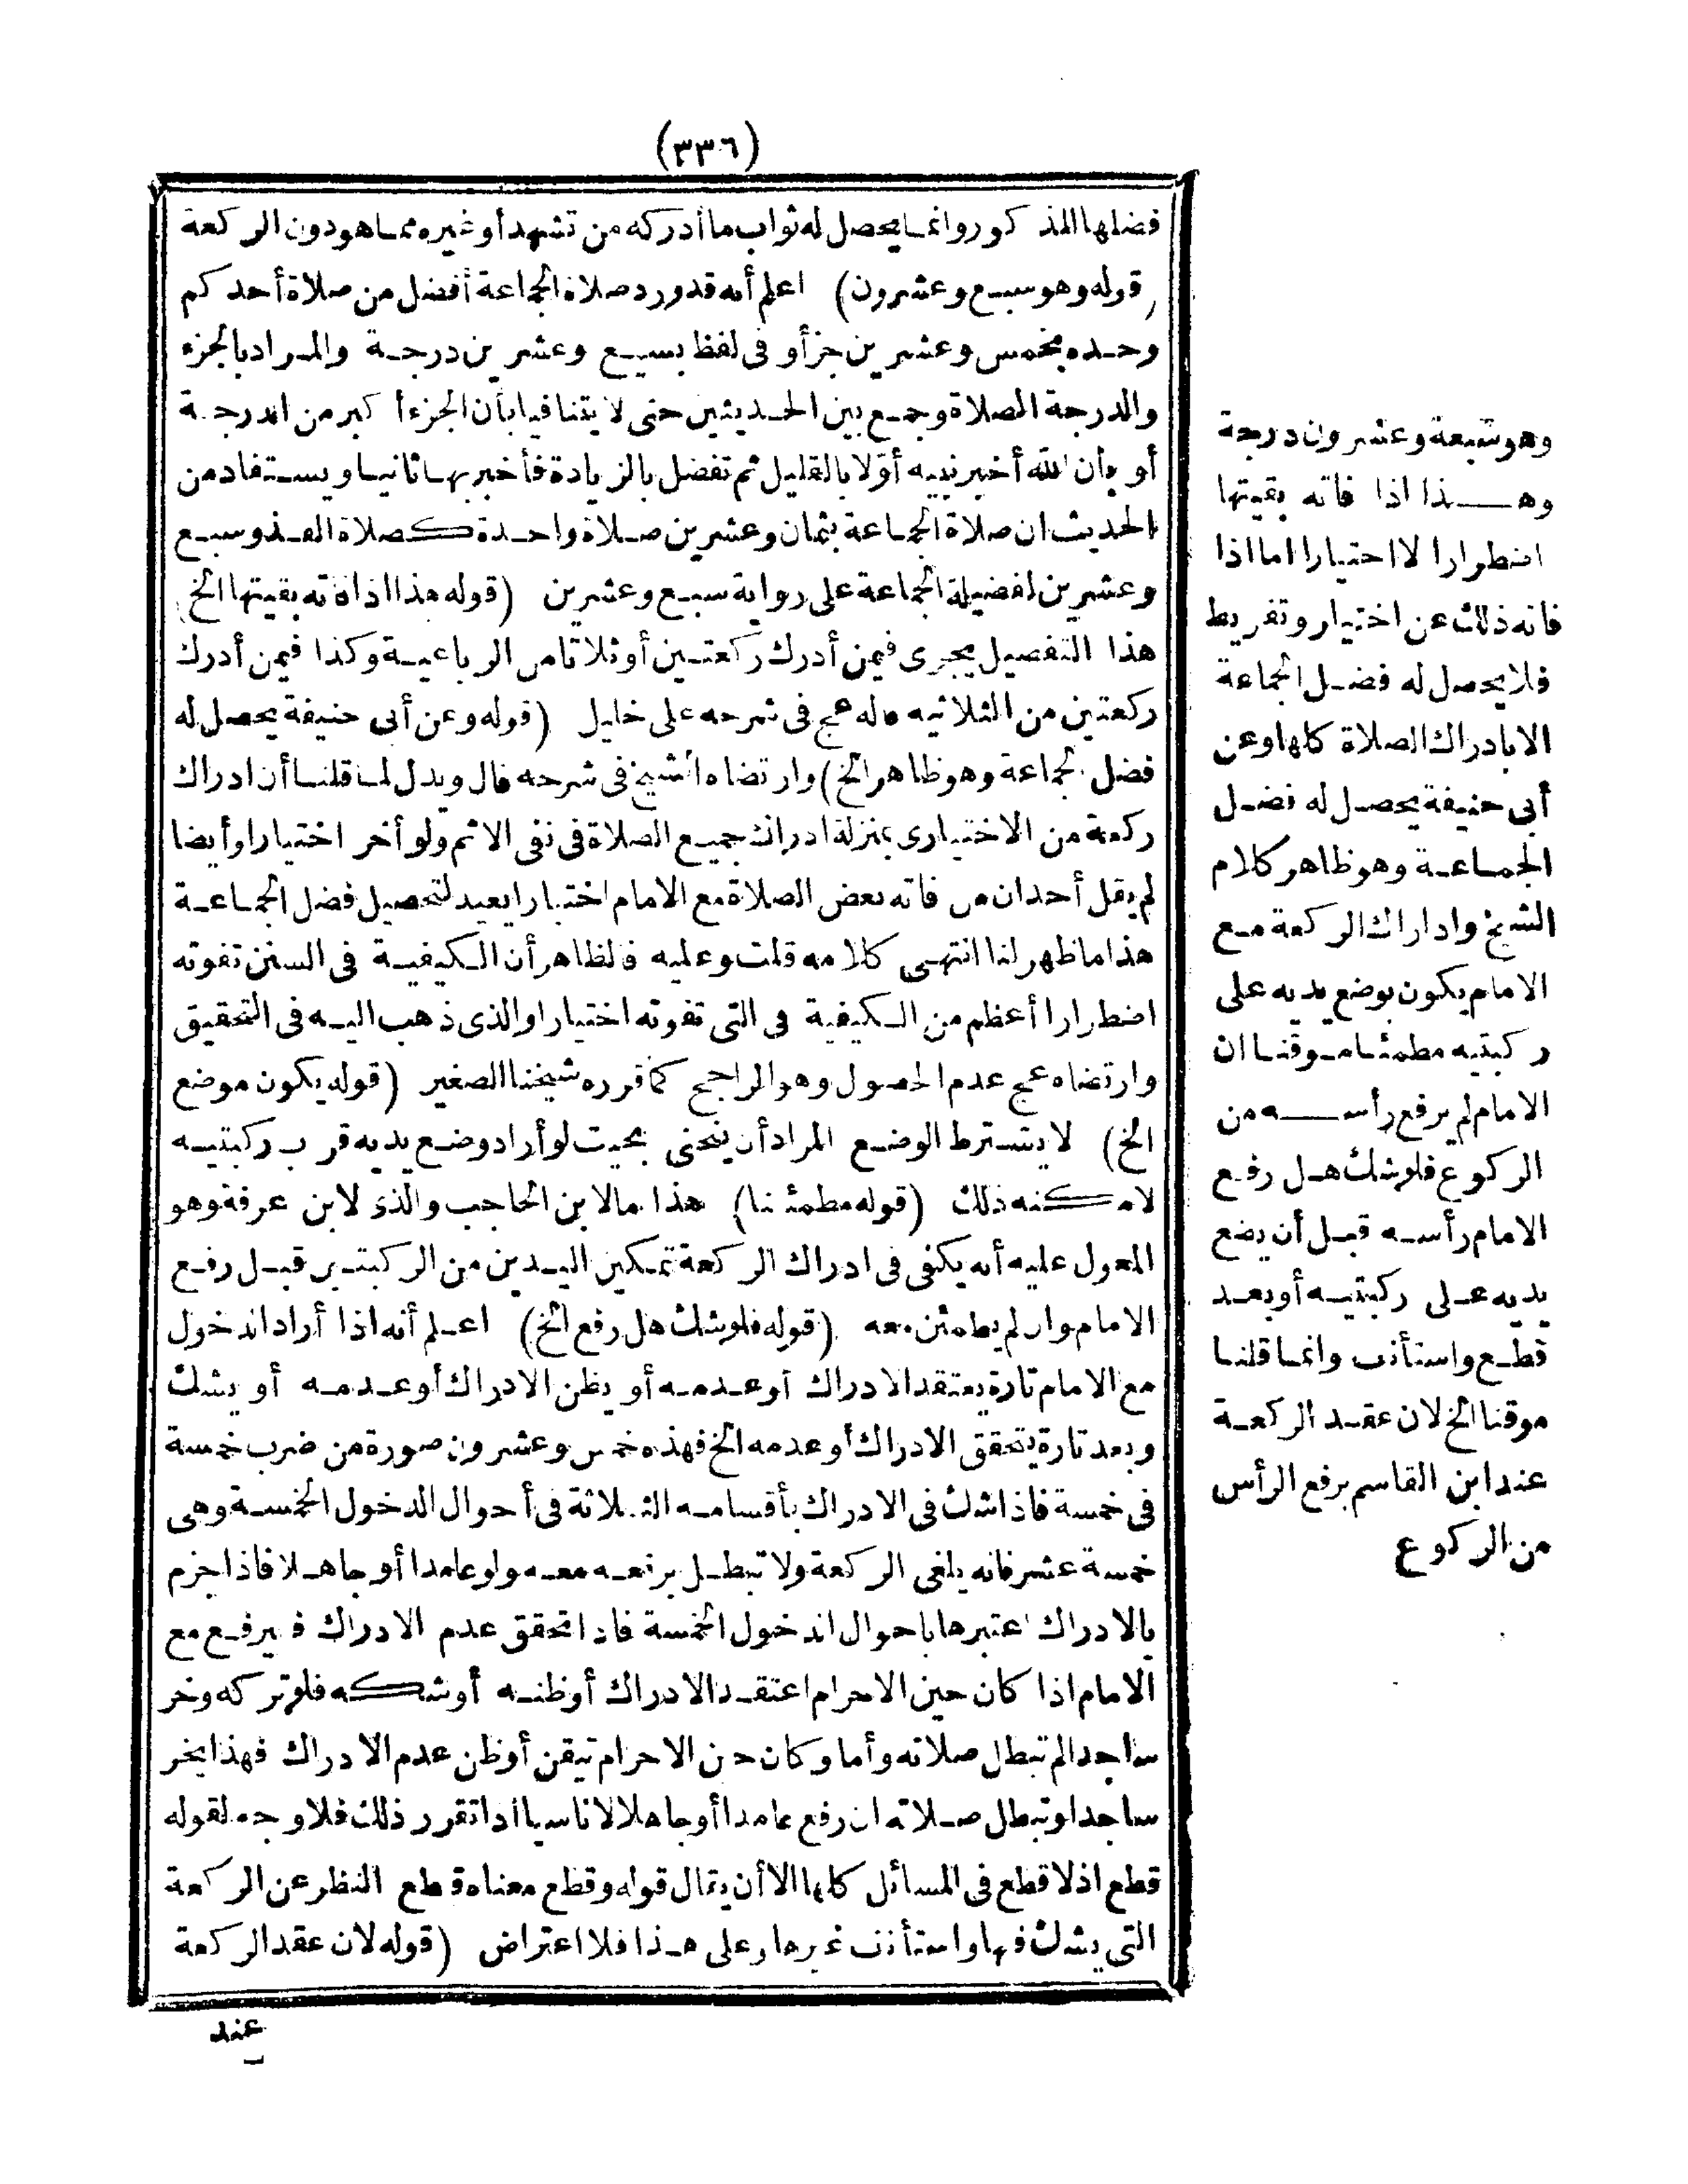 (٣٣٦)
فضلها المذكور وانما يحصل له ثواب ما أدركه من تشهد أو غيره مما هو دون الركعة
(قوله وهو سبع وعشرون) اعلم أنه قد ورد صلاة الجماعة أفضل من صلاة أحدكم
وحده بخمس وعشرين جزأ وفى لفظ بسبع وعشرين درجة والمراد بالجزء
والدرجة الصلاة وجمع بين الحديثين حتى لا يتنافيا بأن الجزء أكبر من الدرجة
أو بأن الله أخبر نبيه أولا بالقليل ثم تفضل بالزيادة فأخبر بها ثانيا ويستفاد من
الحديث ان صلاة الجماعة بثمان وعشرين صلاة واحدة كصلاة الفذ وسبع
وعشرين لفضيلة الجماعة على رواية سبع وعشرين (قوله هذا اذا فاته بقيتها الخ)
هذا التفصيل يجرى فيمن أدرك ركعتين أو ثلاثا من الرباعية وكذا فيمن أدرك
ركعتين من الثلاثيه قاله عج فى شرحه على خليل (قوله وعن أبى حنيفة يحصل له
فضل الجماعة وهو ظاهر الخ) وارتضاه الشيخ فى شرحه قال ويدل لما قلنا أن ادراك
ركعة من الاختيارى بمنزلة ادراك جميع الصلاة فى نفى الاثم ولو أخر اختيارا وأيضا
لم يقل أحدان من فاته بعض الصلاة مع الامام اختيارا يعيد لتحصيل فضل الجماعة
هذا ما ظهر لنا انتهى كلامه قلت وعليه فالظاهر أن الكيفية فى السنن تفوته
اضطرارا أعظم من الكيفية فى التى تفوته اختيارا والذى ذهب اليه فى التحقيق
وارتضاه عج عدم الحصول وهو الراجح كما قرره شيخنا الصغير (قوله يكون موضع
الخ) لا يشترط الوضع المراد أن ينحنى بحيث لو أراد وضع يديه قرب ركبتيه
لامكنه ذلك (قوله مطمئنا) هذا ما لابن الحاجب والذى لابن عرفة وهو
المعول عليه أنه يكفى فى ادراك الركعة تمكين اليدين من الركبتين قبل رفع
الامام وان لم يطمئن معه (قوله فلو شك هل رفع الخ) اعلم أنه اذا أراد الدخول
مع الامام تارة يعتقد الادراك أو عدمه أو يظن الادراك أو عدمه أو يشك
وبعد تارة يتحقق الادراك أو عدمه الخ فهذه خمس وعشرون صورة من ضرب خمسة
فى خمسة فاذا شك فى الادراك بأقسامه الثلاثة فى أحوال الدخول الخمسة وهى
خمسة عشر فانه يلغى الركعة ولا تبطل برفعه معه ولو عامدا أو جاهلا فاذا جزم
بالادراك اعتبرها باحوال الدخول الخمسة فاذا تحقق عدم الادراك فيرفع مع
الامام اذا كان حين الاحرام اعتقد الادراك أو ظنه أو شكه فلو تركه وخر
ساجدا لم تبطل صلاته وأما وكان حين الاحرام تيقن أو ظن عدم الادراك فهذا يخر
ساجدا وتبطل صلاته ان رفع عامدا أو جاهلا لا ناسيا اذا تقرر ذلك فلا وجه لقوله
قطع اذ لا قطع فى المسائل كلها الا أن يقال قوله وقطع معناه قطع النظر عن الركعة
التى يشك فيها واستأنف غيرها وعلى هذا فلا اعتراض (قوله لان عقد الركعة
عند
وهو سبعة وعشرون درجة
وهذا اذا فاته بقيتها
اضطرارا لا اختيارا اما اذا
فاته ذلك عن اختيار وتفريط
فلا يحصل له فضل الجماعة
الا بادراك الصلاة كلها وعن
أبى حنيفة يحصل له فضل
الجماعة وهو ظاهر كلام
الشيخ وادراك الركعة مع
الامام يكون بوضع يديه على
ركبتيه مطمئنا موقنا ان
الامام لم يرفع رأسه من
الركوع فلو شك هل رفع
الامام رأسه قبل أن يضع
يديه على ركبتيه أو بعد
قطع واستأنف وانما قلنا
موقنا الخ لان عقد الركعة
عند ابن القاسم برفع الرأس
من الركوع